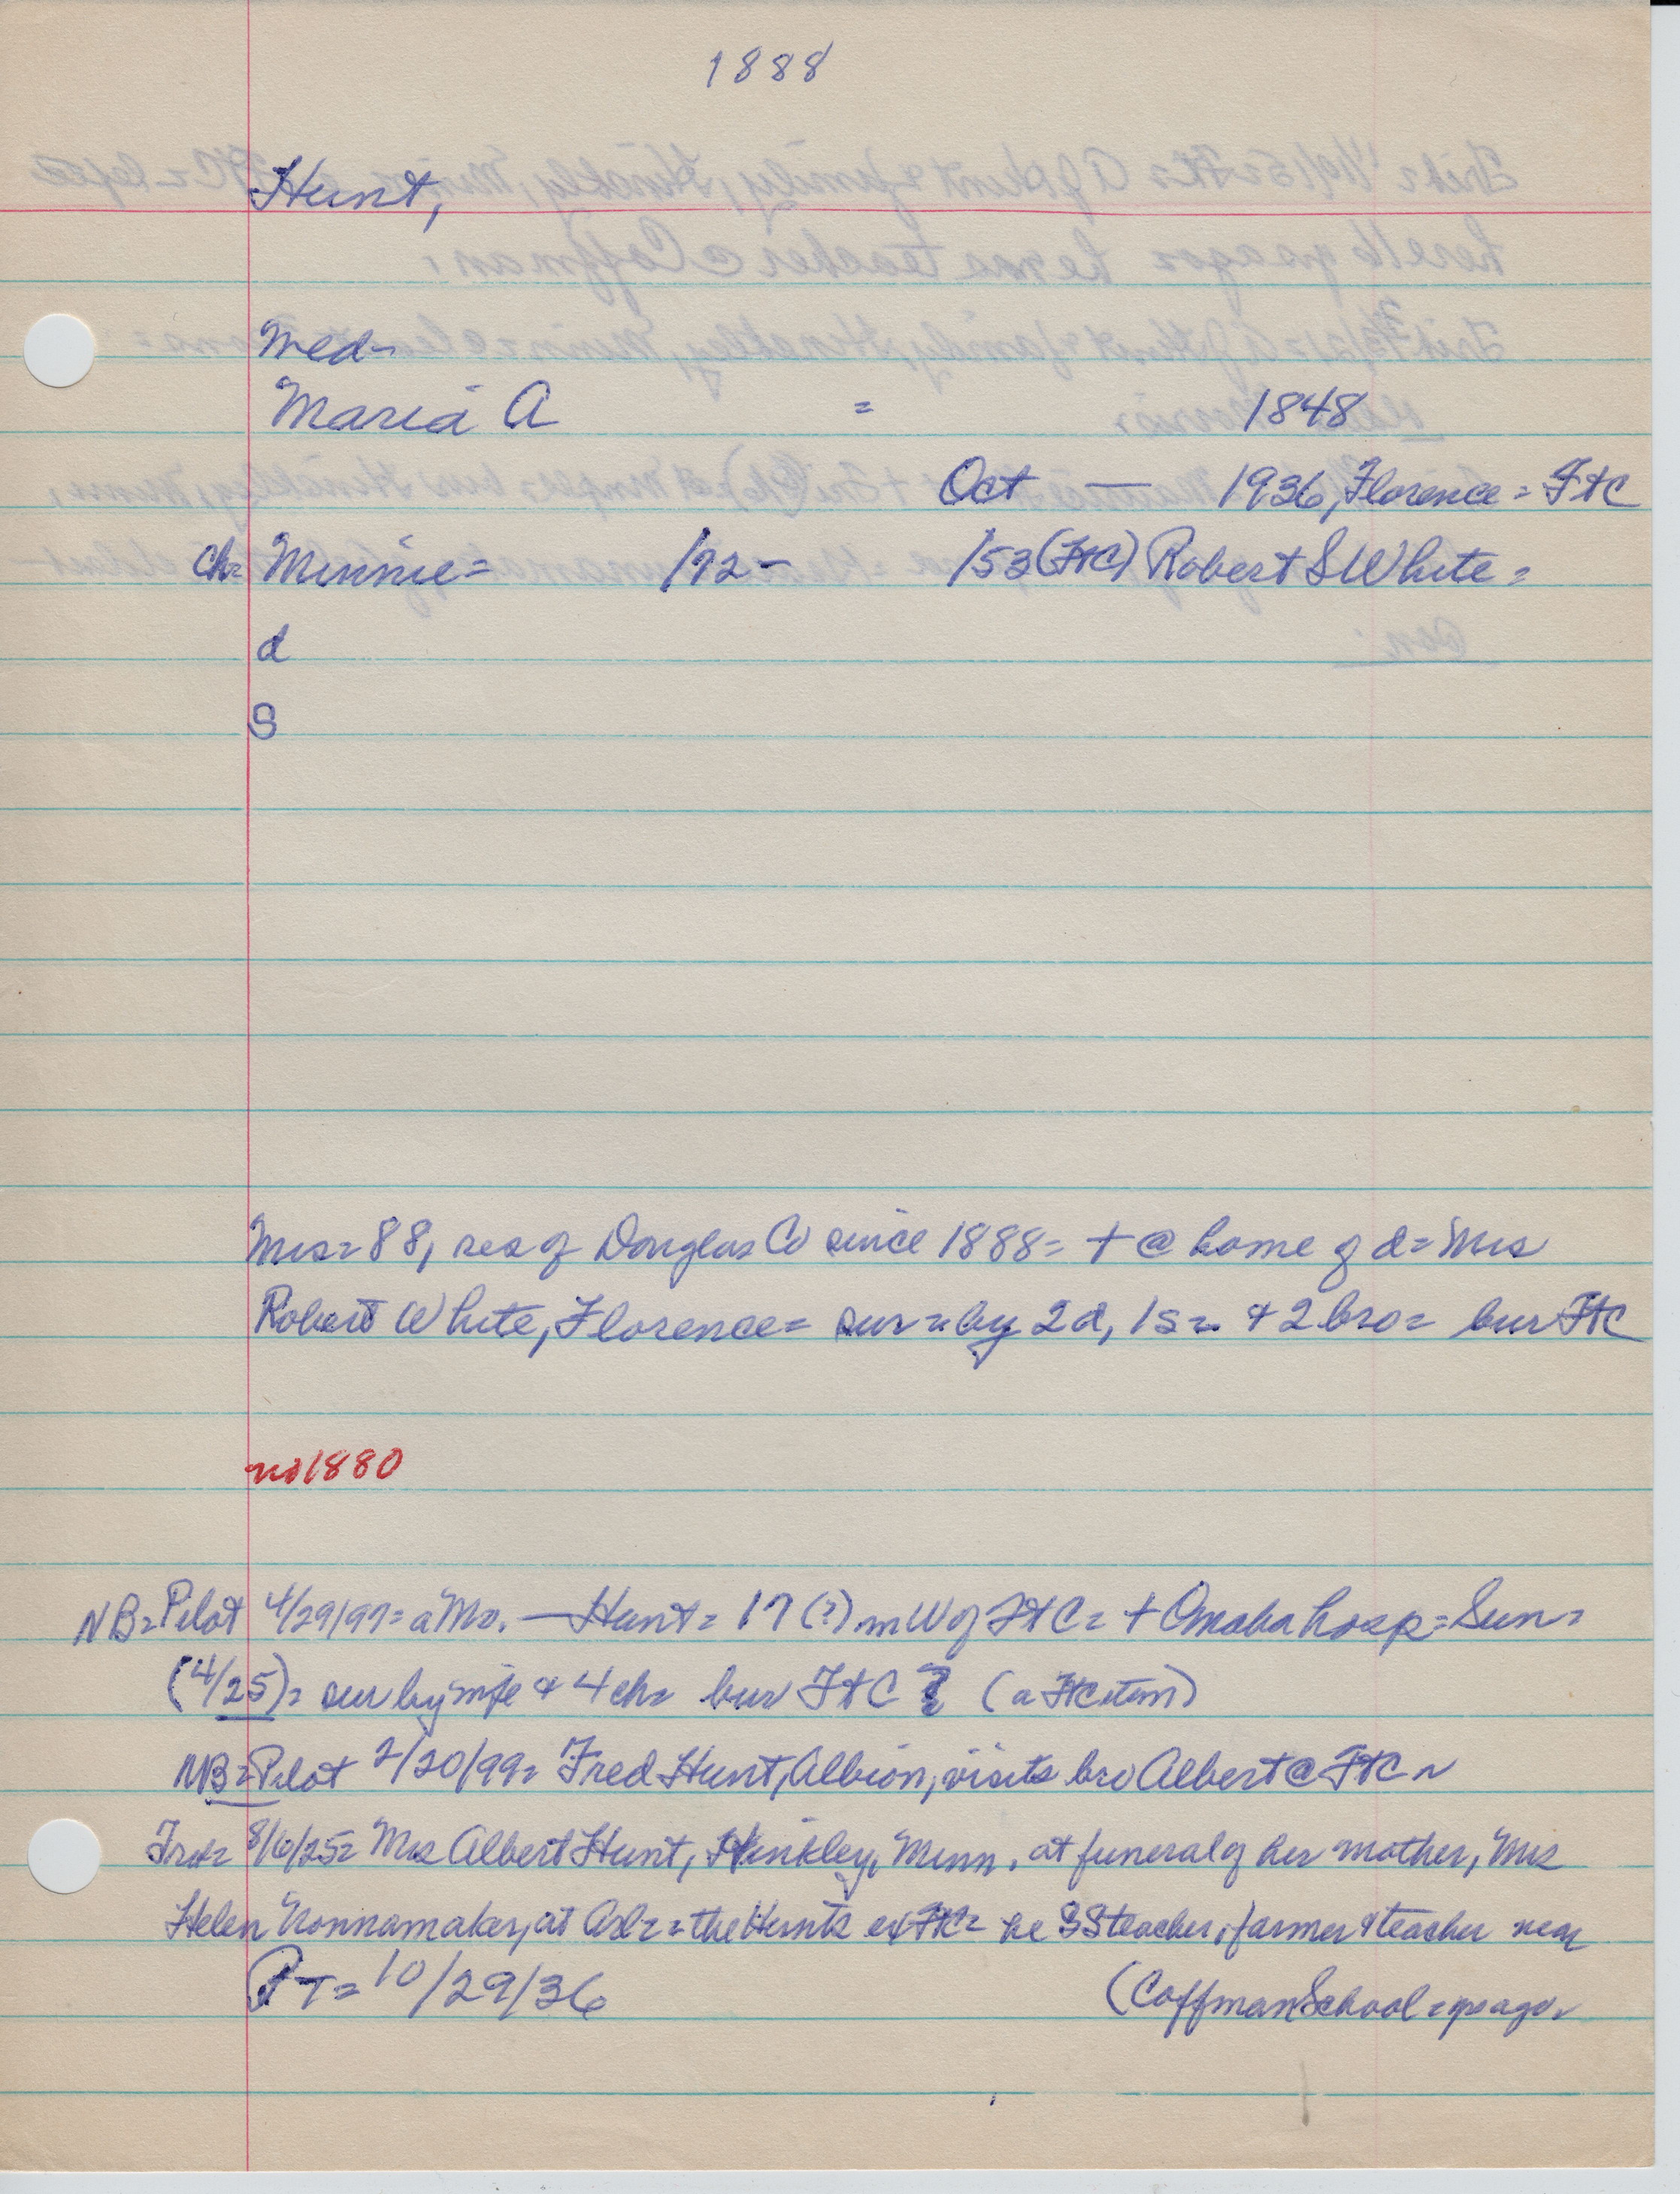 1888
Hunt,
Wed-
Maria A = 1848
Oct — 1936, Florence = FtC
ch= Minnie= /72- /53 (FtC) Robert S White =
d
S
Mrs= 88, res of Douglas Co since 1888= + @ home of d= Mrs
Robert White, Florence= sur= by 2d, 1s= + 2 bro= bur FtC
no 1880
NB= Pilot 4/29/97= a Mr. — Hunt= 17 (?) m W of FtC= + Omaha hosp= Sun=
(4/25)= sur by wife + 4 ch= bur FtC ? (a FtC item)
NB= Pilot 2/20/99= Fred Hunt, Albion, visits bro Albert @ FtC ~
Trib= 8/6/25= Mrs Albert Hunt, Hinkley, Minn, at funeral of her mother, Mrs
Helen Nonnamaker, at Arl= = the Hunts ex FtC= he SS teacher, farmer & teacher near
PT= 10/29/36 (Coffman School = yrs ago=